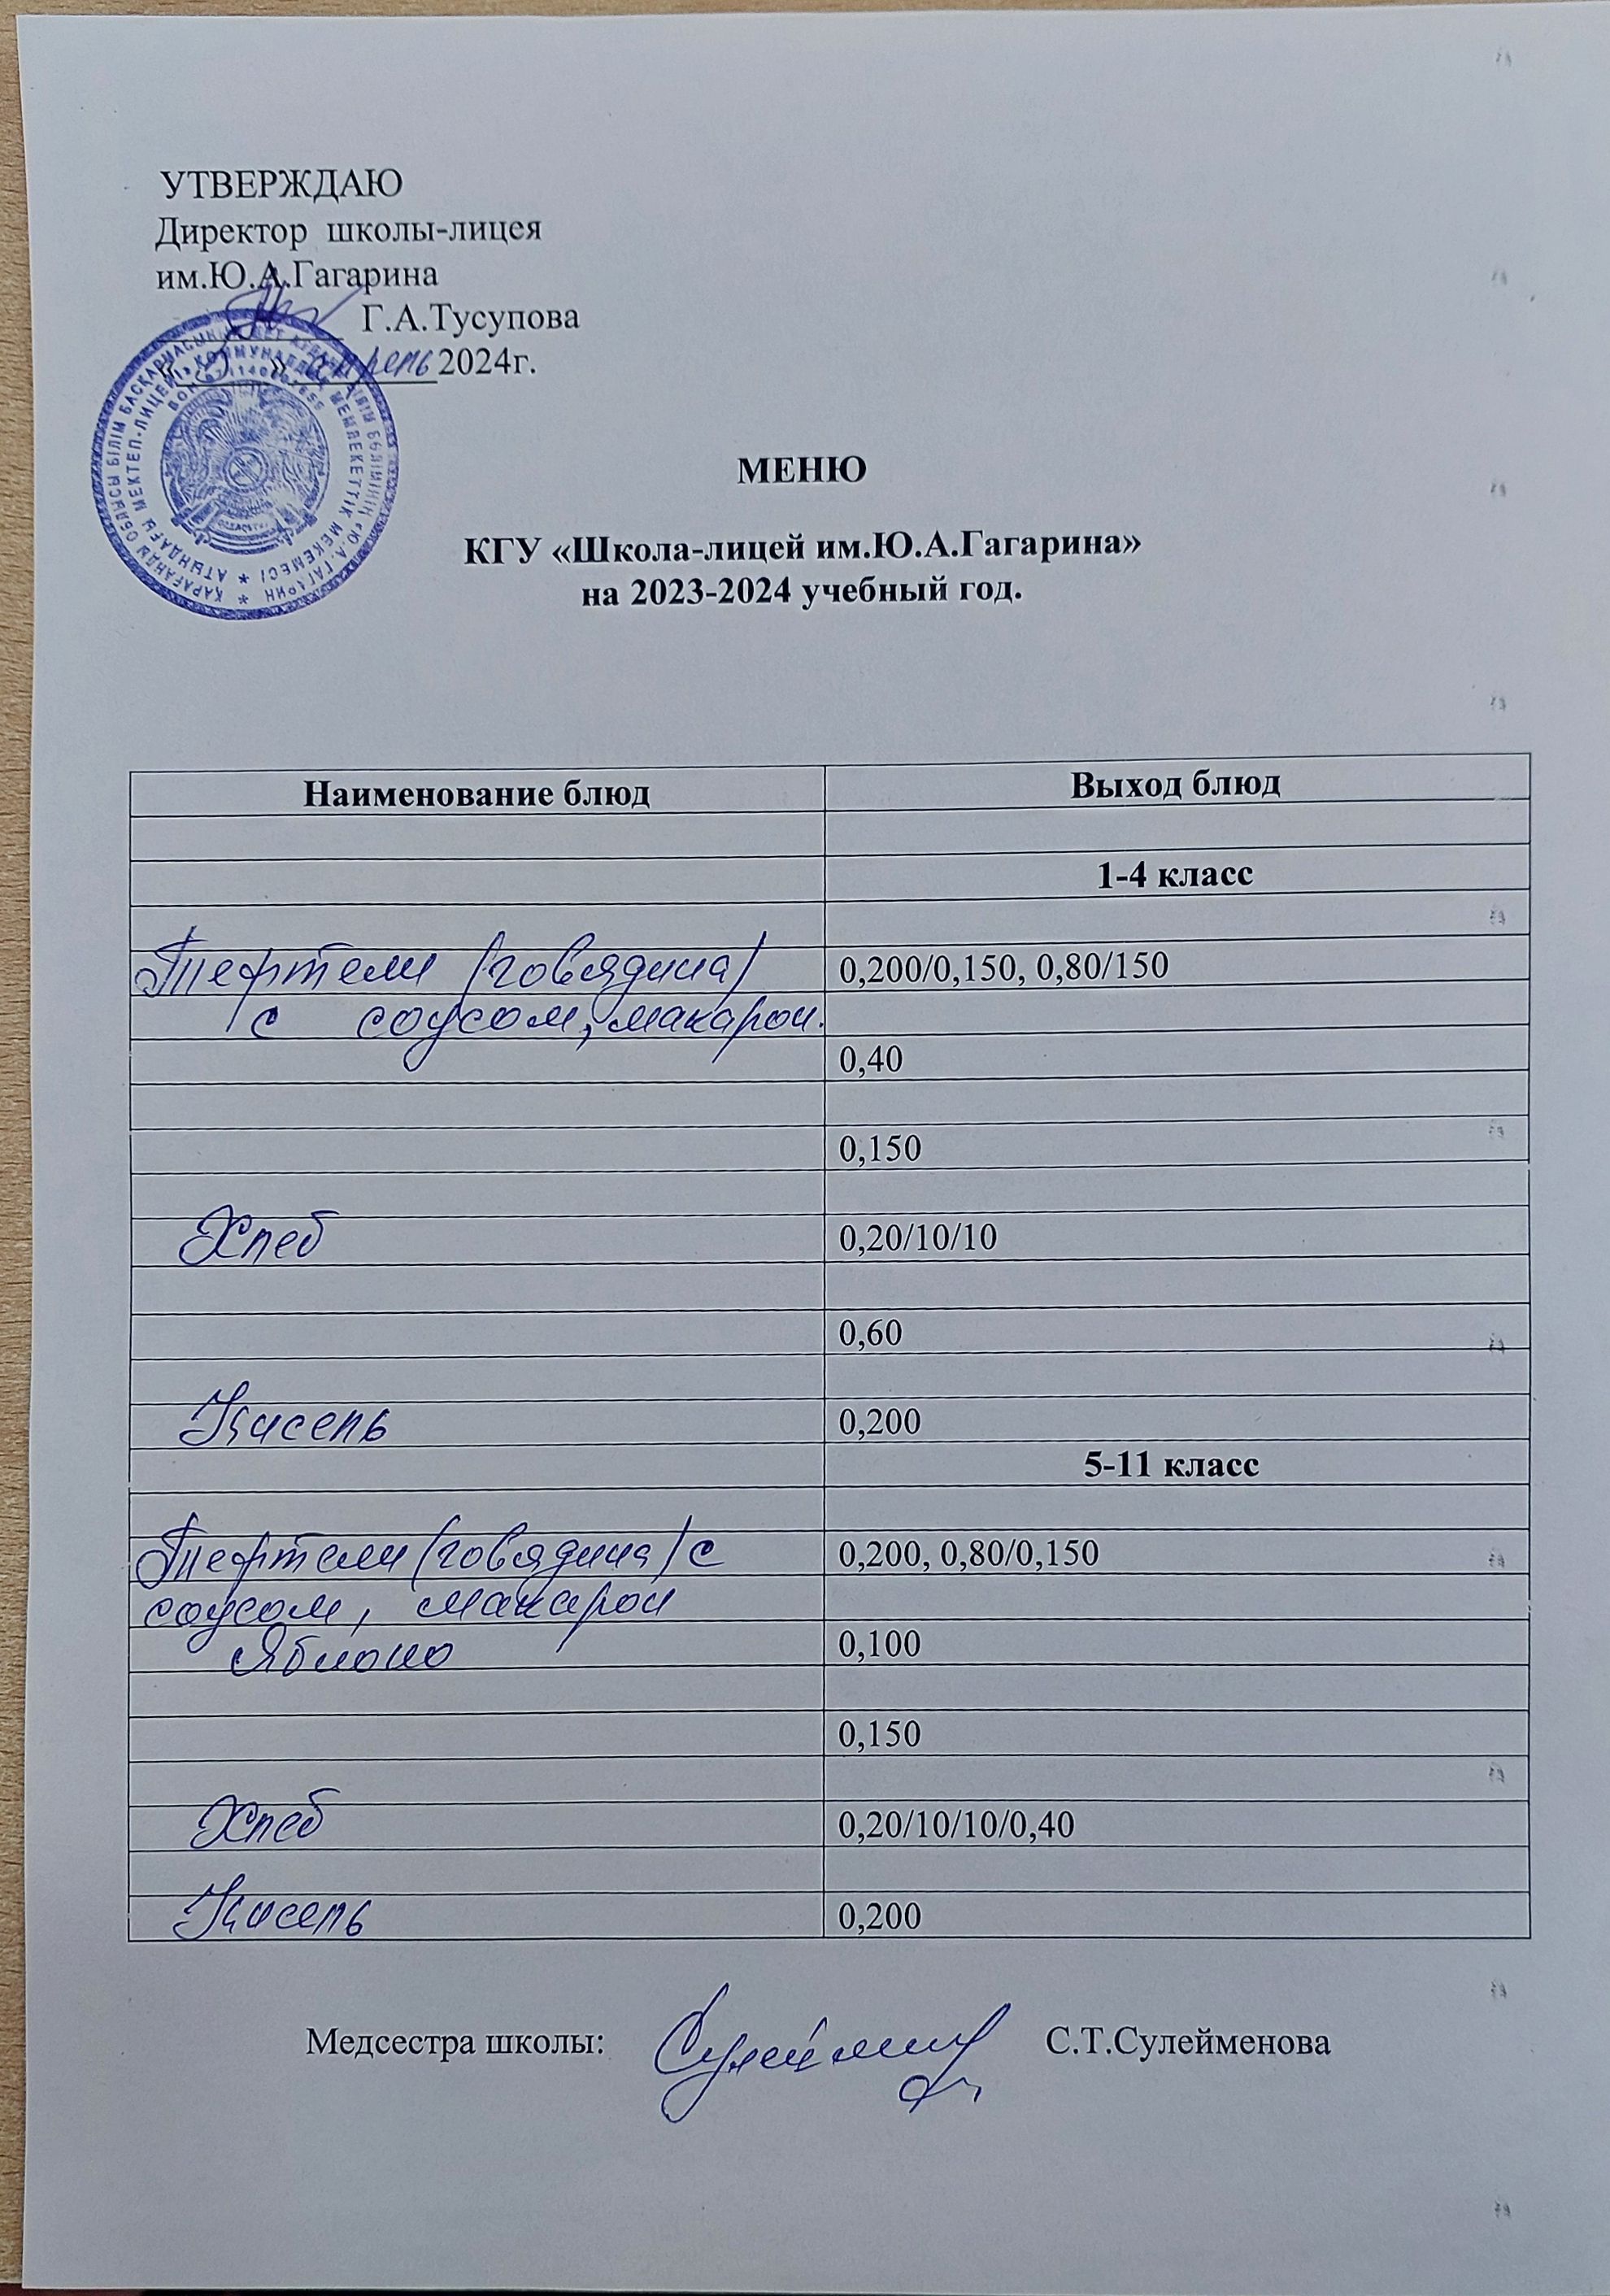 УТВЕРЖДАЮ
Директор школы-лицея
им.Ю.А.Гагарина
Г.А.Тусупова
« » апрель 2024г.
МЕНЮ
КГУ «Школа-лицей им.Ю.А.Гагарина»
на 2023-2024 учебный год.
Наименование блюд Выход блюд
1-4 класс
Тефтели (говядина) 0,200/0,150, 0,80/150
с соусом, макарон.
0,40
0,150
Хлеб 0,20/10/10
0,60
Кисель 0,200
5-11 класс
Тефтели (говядина) с 0,200, 0,80/0,150
соусом, макарон
Яблоко 0,100
0,150
Хлеб 0,20/10/10/0,40
Кисель 0,200
Медсестра школы: С.Т.Сулейменова